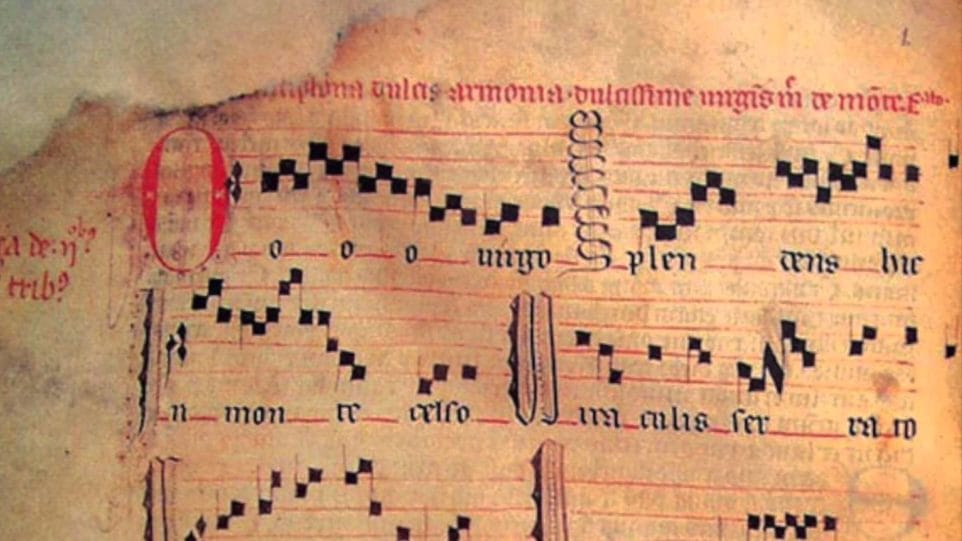 1.
antiphona dulcis armonia dulcissime virgĩs m̃ de mõte.
O o o o virgo Splen dens hic
In mon te celso Mira culis ser ra to